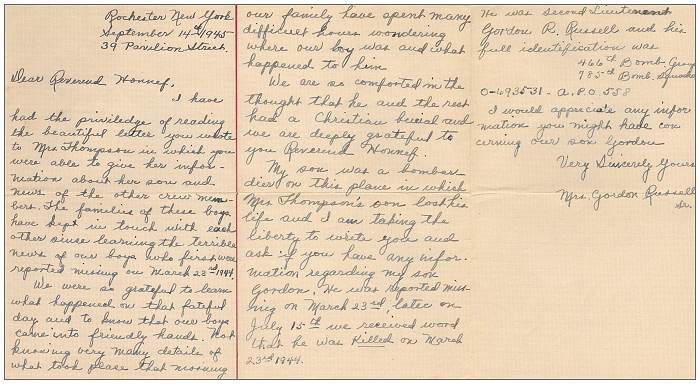 Rochester New York
September 14th 1945
39 Pavilion Street.
Dear Reverend Honnef.
I have
had the priviledge of reading
the beautiful letter you wrote
to Mrs Thompson in which you
were able to give her infor-
mation about her son and
news of the other crew mem-
bers. The families of these boys
have kept in touch with each
other since learning the terrible
news of our boys who first were
reported missing on March 23rd, 1944.
We were so grateful to learn
what happened on that fateful
day and to know that our boys
came into friendly hands. Not
knowing very many details of
what took place that morning
our family have spent many
difficult hours wondering
where our boy was and what
happened to him
We are so comforted in the
thought that he and the rest
had a Christian burial and
we are deeply grateful to
you Reverend Honnef.
My son was a bombar-
dier on this plane in which
Mrs Thompson's son lost his
life and I am taking the
liberty to write you and
ask if you have any infor-
mation regarding my son
Gordon. He was reported miss-
ing on March 23rd, later on
July 15th we received word
that he was Killed on March
23rd 1944.
He was second Lieutenant
Gordon R. Russell and his
full identification was
466th Bomb. Group
785th Bomb. Squadron
0-693531 - A.P.O. 558
I would appreciate any infor
mation you might have con
cerning our son Gordon
Very Sincerely Yours
Mrs. Gordon Russell
Sr.